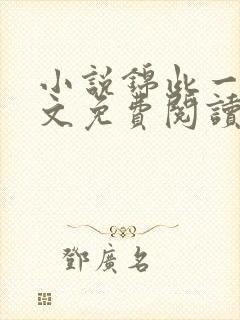 小説錦此一
文免費閱讀
鄧廣名